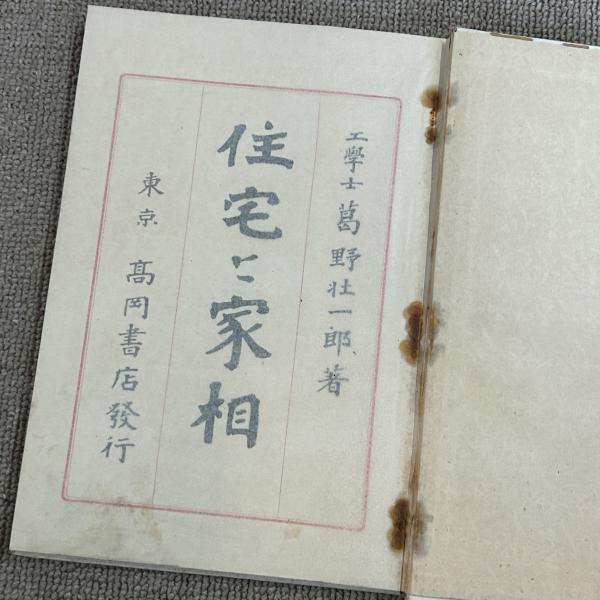 工學士 葛野壯一郎著
住宅と家相
東京 髙岡書店發行